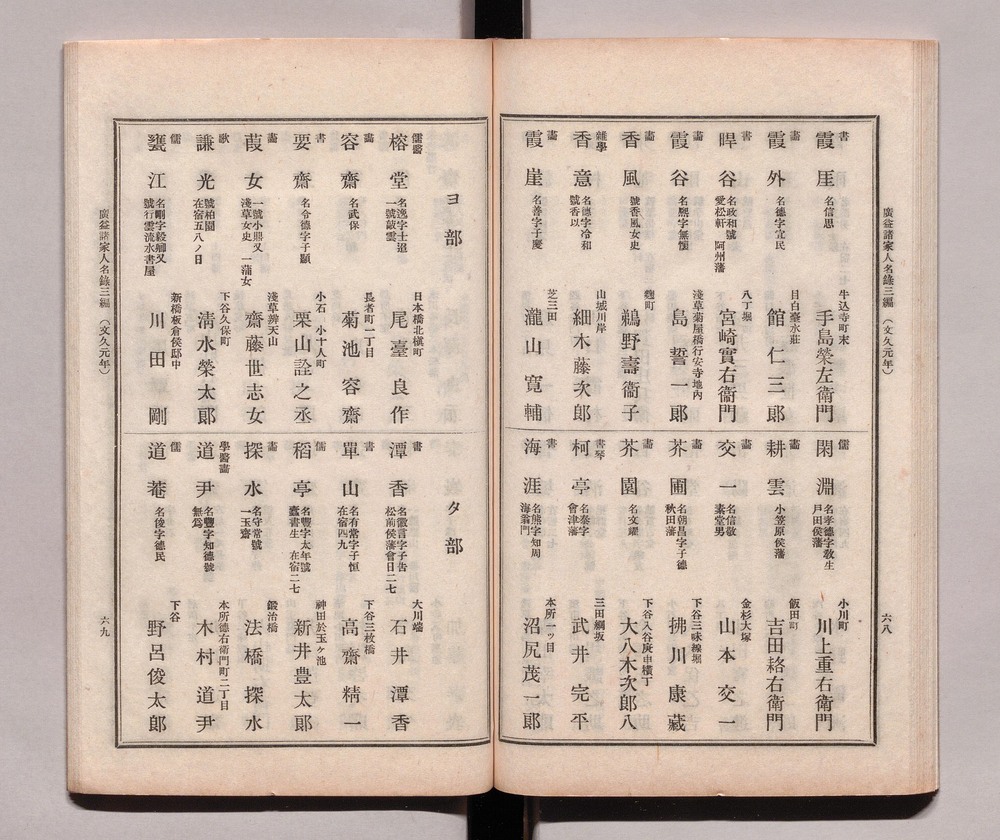 廣益諸家人名錄三編（文久元年）
六八
書 霞厓 名信思 牛込寺町末 手島榮左衛門
畵 霞外 名德字宜民 目白臺水莊 館仁三郎
書 㫰谷 名政和號愛松軒 阿州藩 八丁堀 宮崎實右衞門
畵 霞谷 名熙字無慍 淺草菊屋橋行安寺地內 島誓一郎
畵 香風 號香風女史 麹町 鵜野壽衞子
雜學 香意 名德字冷和號香以 山城川岸 細木藤次郎
畵 霞崖 名善字子慶 芝三田 瀧山寬輔
儒 閑淵 名孝德字敎生戶田侯藩 小川町 川上重右衛門
畵 耕雲 小笠原侯藩 飯田町 吉田𥿻右衛門
畵 交一 名信敬素堂男 金杉大塚 山本交一
畵 芥圃 名朝昌字子德秋田藩 下谷三味線堀 拂川康藏
畵 芥園 名文耀 下谷入谷庚申橫丁 大八木次郎八
書琴 柯亭 名泰字會津藩 三田綱坂 武井完平
書 海涯 名熊字知周海翁門 本所一ッ目 沼尻茂一郎
ヨ部
儒醫 榕堂 名逸字士超一號敲雲 日本橋北槇町 尾臺良作
畵 容齋 名武保 長者町一丁目 菊池容齋
書 要齋 名令德字子顯 小石 小十人町 栗山詮之丞
畵 葭女 一號小鼎又淺草女史 一蒲女 淺草辨天山 齋藤世志女
歌 謙光 號柏園在宿五八ノ日 下谷久保町 淸水榮太郎
儒 甕江 名剛字毅卿又號行雲流水書屋 新橋板倉侯邸中 川田剛
タ部
書 潭香 名徽言字子吿松前侯藩會日二七 大川端 石井潭香
書 單山 名有常字子恒在宿四九 下谷三枚橋 高齋精一
儒 稻亭 名豐字太年號蠹書生 在宿二七 神田於玉ヶ池 新井豊太郎
畵 探水 名守常號一玉齋 鍛冶橋 法橋探水
學醫畵 道尹 名豐字知德號無爲 本所德右衛門町二丁目 木村道尹
儒 道菴 名俊字德民 下谷 野呂俊太郎
廣益諸家人名錄三編（文久元年）
六九